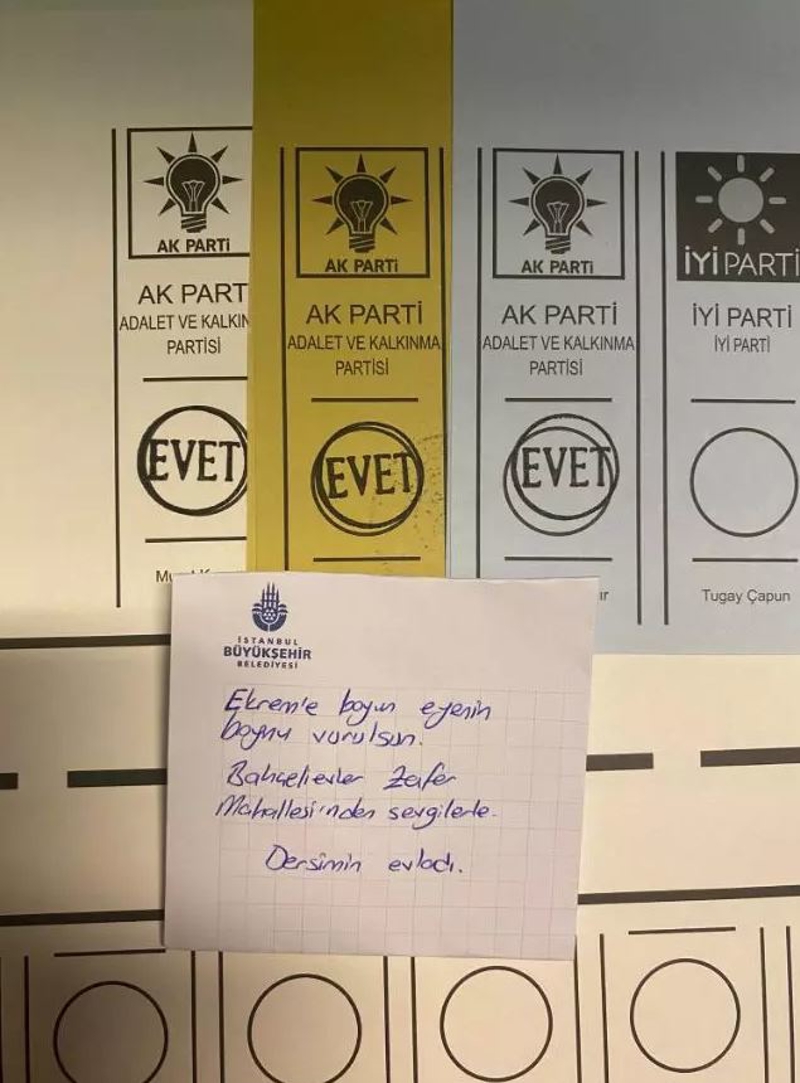 AK PARTİ
AK PART
ADALET VE KALKIN
PARTİSİ
EVET
AK PARTİ
AK PARTİ
ADALET VE KALKINMA
PARTİSİ
EVET
AK PARTİ
AK PARTİ
ADALET VE KALKINMA
PARTİSİ
EVET
İYİ PARTİ
İYİ PARTİ
İYİ PARTİ
Tugay Çapun
İSTANBUL
BÜYÜKŞEHİR
BELEDİYESİ
Ekrem'e boyun eyenin
boynu vurulsun.
Bahçelievler Zafer
Mahallesi'nden sevgilerle.
Dersimin evladı.